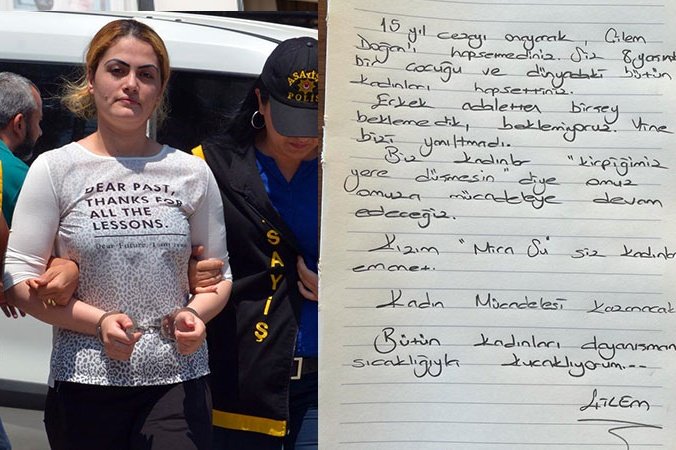 DEAR PAST,
THANKS FOR
ALL THE
LESSONS.
Dear Future, I am
ASAYİŞ
POLİS
ASAYİŞ
15 yıl cezayı onayarak, Çilem
Doğan'ı hapsemediniz. Siz 8 yaşında
bir çocuğu ve dünyadaki bütün
kadınları hapsettiniz.
Erkek adaletten birşey
beklemedik, beklemiyoruz. Yine
bizi yanıltmadı.
Biz kadınlar "kirpiğimiz
yere düşmesin" diye omuz
omuza mücadeleye devam
edeceğiz.
Kızım "Mira Su" siz kadınlara
emanet.
Kadın Mücadelesi Kazanacak
Bütün kadınları dayanışmanın
sıcaklığıyla kucaklıyorum...
ÇİLEM